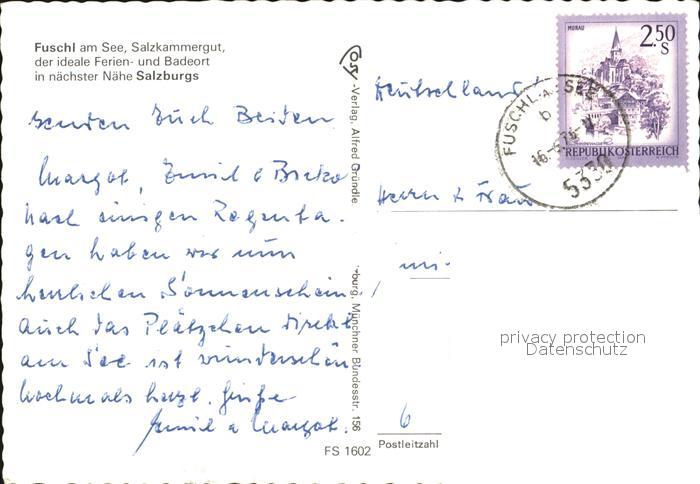 Fuschl am See, Salzkammergut,
der ideale Ferien- und Badeort
in nächster Nähe Salzburgs
senden Euch Beiden
Margot, Emil &
Nach einigen Regenta-
gen haben wir nun
herrlichen Sonnenschein,
auch das Plätzchen direkt
am See ist wunderschön
Nochmals herzl. Grüße
Emil u Margot.
FS 1602
-Verlag, Alfred Gründle
burg, Münchner Bundesstr. 156
Deutschland
Herrn & Frau
6
Postleitzahl
MURAU
2.50
S
REPUBLIK ÖSTERREICH
FUSCHL A. SEE
b
5330
privacy protection
Datenschutz